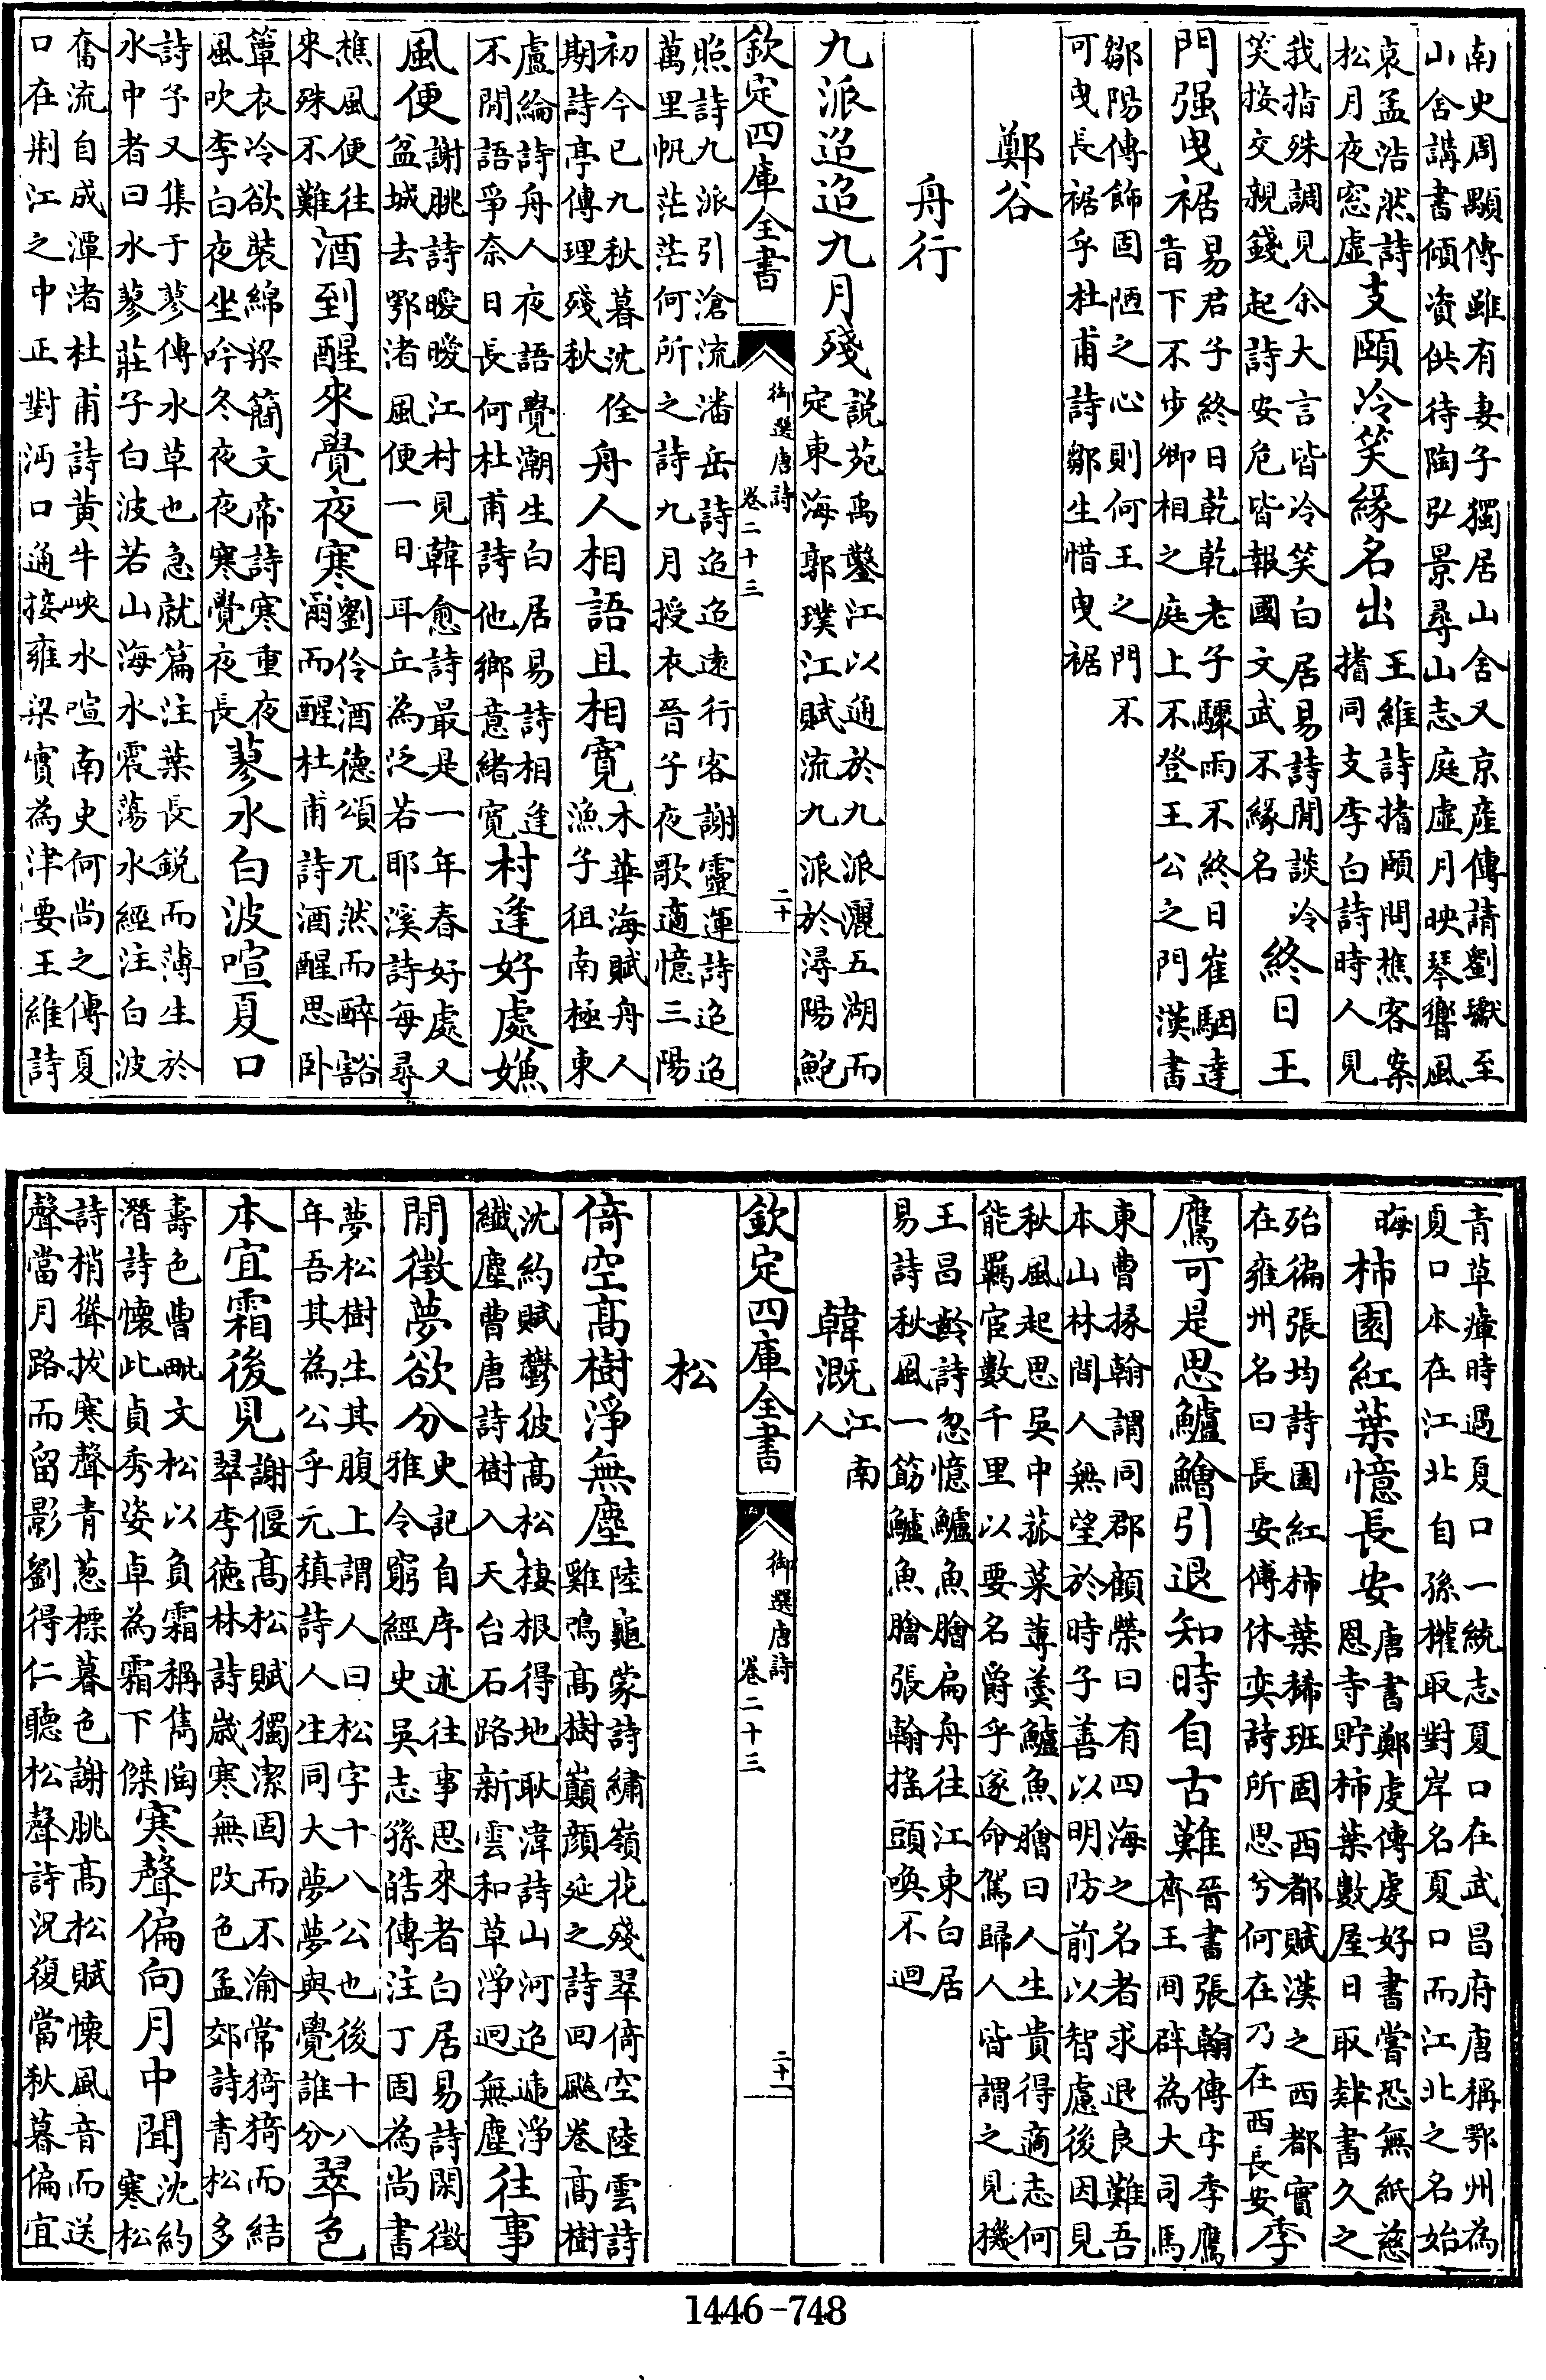 南史周顒傳雖有妻子獨居山舍又京産傳請劉瓛至
山舍講書傾資供待陶弘景尋山志庭虛月映琴響風
哀孟浩然詩
松月夜窓虛
支頤冷笑緣名出
王維詩搘頤問樵客案
搘同支李白詩時人見
我指殊調見余大言皆冷笑白居易詩閒談冷
笑接交親錢起詩安危皆報國文武不緣名
終日王
門强曳裾
易君子終日乾乾老子驟雨不終日崔駰達
旨下不步卿相之庭上不登王公之門漢書
鄒陽傳飾固陋之心則何王之門不
可曳長裾乎杜甫詩鄒生惜曳裾
鄭谷
舟行
九派迢迢九月殘
說苑禹鑿江以通於九派灑五湖而
定東海郭璞江賦流九派於潯陽鮑
欽定四庫全書
御選唐詩
卷二十三
二十
照詩九派引滄流潘岳詩迢迢遠行客謝靈運詩迢迢
萬里帆茫茫何所之詩九月授衣晉子夜歌適憶三陽
初今已九秋暮沈佺
期詩亭傳理殘秋
舟人相語且相寬
木華海賦舟人
漁子徂南極東
盧綸詩舟人夜語覺潮生白居易詩相逢
不閒語爭奈日長何杜甫詩他鄉意緒寬
村逢好處嫌
風便
謝朓詩曖曖江村見韓愈詩最是一年春好處又
盆城去鄂渚風便一日耳丘為泛若耶溪詩每尋
樵風便往
來殊不難
酒到醒來覺夜寒
劉伶酒德頌兀然而醉豁
爾而醒杜甫詩酒醒思卧
簟衣冷欲裝綿梁簡文帝詩寒重夜
風吹李白夜坐吟冬夜夜寒覺夜長
蓼水白波喧夏口
詩予又集于蓼傳水草也急就篇注葉長鋭而薄生於
水中者曰水蓼莊子白波若山海水震蕩水經注白波
奮流自成潭渚杜甫詩黃牛峽水喧南史何尚之傳夏
口在荆江之中正對沔口通接雍梁實為津要王維詩
青草瘴時過夏口一統志夏口在武昌府唐稱鄂州為
夏口本在江北自孫權取對岸名夏口而江北之名始
晦
柿園紅葉憶長安
唐書鄭虔傳虔好書嘗恐無紙慈
恩寺貯柿葉數屋日取肄書久之
殆徧張均詩園紅柿葉稀班固西都賦漢之西都實
在雍州名曰長安傅休奕詩所思兮何在乃在西長安
季
鷹可是思鱸鱠引退知時自古難
晉書張翰傳字季鷹
齊王冏辟為大司馬
東曹掾翰謂同郡顧榮曰有四海之名者求退良難吾
本山林間人無望於時子善以明防前以智慮後因見
秋風起思吳中菰菜蓴羹鱸魚膾曰人生貴得適志何
能羈宦數千里以要名爵乎遂命駕歸人皆謂之見機
王昌齡詩忽憶鱸魚膾扁舟往江東白居
易詩秋風一筯鱸魚膾張翰搖頭喚不迴
韓溉
江南
人
欽定四庫全書
御選唐詩
卷二十三
二十一
松
倚空高樹淨無塵
陸龜蒙詩繡嶺花殘翠倚空陸雲詩
雞鳴高樹巔顔延之詩回飈卷高樹
沈約賦鬱彼高松棲根得地耿湋詩山河迢遞淨
纖塵曹唐詩樹入天台石路新雲和草淨迥無塵
往事
閒徵夢欲分
史記自序述往事思來者白居易詩閑徵
雅令窮經史吳志孫皓傳注丁固為尚書
夢松樹生其腹上謂人曰松字十八公也後十八
年吾其為公乎元稹詩人生同大夢夢與覺誰分
翠色
本宜霜後見
謝偃高松賦獨潔固而不渝常猗猗而結
翠李徳林詩歲寒無改色孟郊詩青松多
壽色曹毗文松以負霜稱雋陶
潛詩懷此貞秀姿卓為霜下傑
寒聲偏向月中聞
沈約
寒松
詩梢聳拔寒聲青葱標暮色謝朓高松賦懷風音而送
聲當月路而留影劉得仁聽松聲詩況復當秋暮偏宜
1446-748